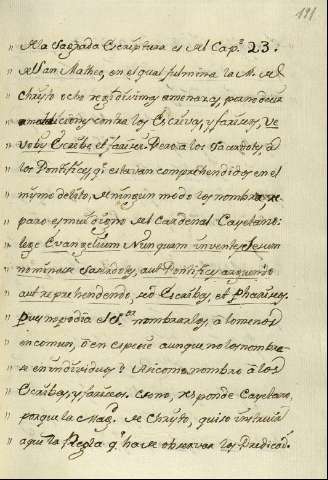 191
" de la Sagrada Escriptura es del Cap.º 23.
" de San Matheo, en el qual fulmina la M. de
" Christo ocho amenazas, por no decir
" maldiciones contra los Escrivas, y fariseos, ve
" vobis Scribæ et farisei. Pero a los Sacerdotes, a
" los Pontifices, q.e estavan comprehendidos en el
" mismo delito, de ningun modo los nombra: re
" paro es muy digno del Cardenal Cayetano:
" lege Evangelium Nunquam invenies Jesum
" nominasse Sacerdotes, aut Pontifices arguendo
" aut reprehendendo, sed Scribas, et Phariseos.
" Pues no podia el S.or nombrarlos, a lo menos
" en comun, ò en especie aunque no los nombra
" se en individuo? Asi como nombro a los
" Escribas, y fariseos. Como, responde Cayetano,
" porque la Mag.d de Christo, quiso instruir
" aqui la Regla q.e ha de observar los Predicad.